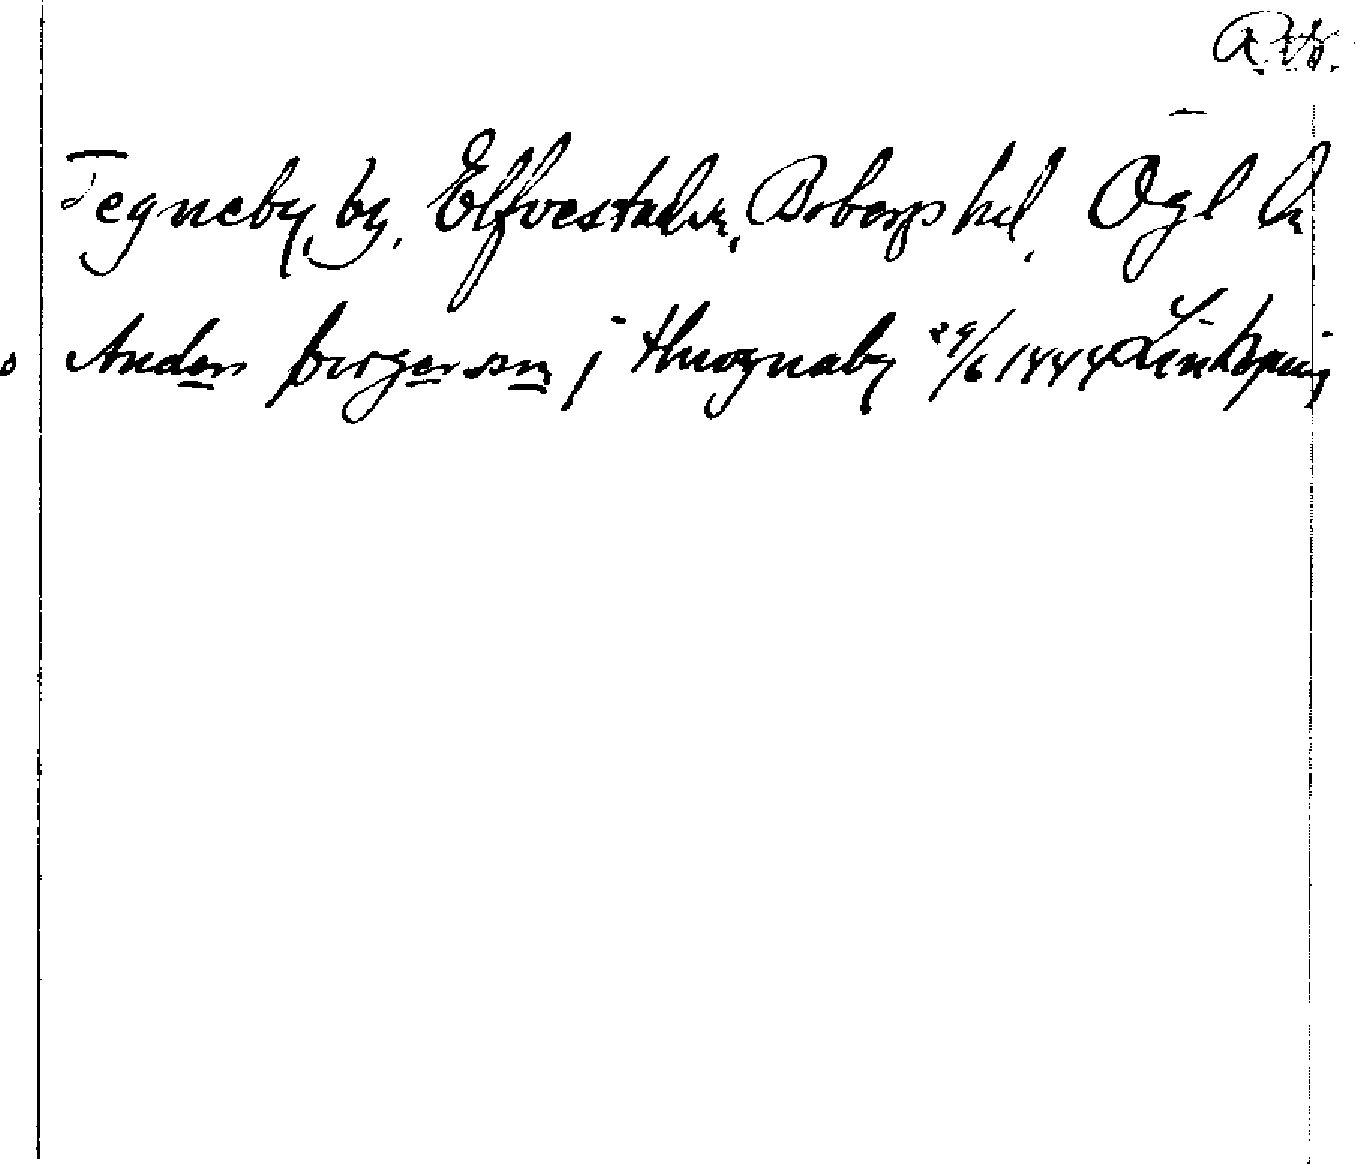 Tegneby by, Elfvestads sn, Bobergs hd, Ögl ln
o Anders birgersson j thiognaby 29/6 1444 Linköping